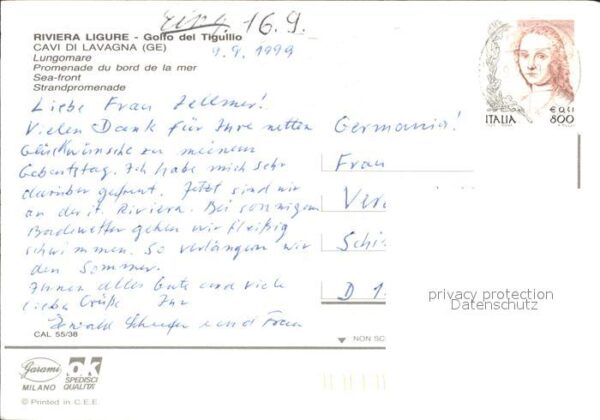 eing. 16.9.
RIVIERA LIGURE - Golfo del Tigullio
CAVI DI LAVAGNA (GE)
Lungomare
Promenade du bord de la mer
Sea-front
Strandpromenade
9.9.1999
ITALIA
€ 0,41
800
Liebe Frau Zellmer!
Vielen Dank für Ihre netten
Glückwünsche zu meinem
Geburtstag. Ich habe mich sehr
darüber gefreut. Jetzt sind wir
an der it. Riviera. Bei sonnigem
Badewetter gehen wir fleißig
schwimmen. So verlängern wir
den Sommer.
Ihnen alles Gute und viele
liebe Grüße Ihr
und Frau
Germania!
Frau
Ver
Schi
D 1
privacy protection
Datenschutz
CAL 55/38
NON SC
Garami
MILANO
OK
SPEDISCI
QUALITA'
© Printed in C.E.E.